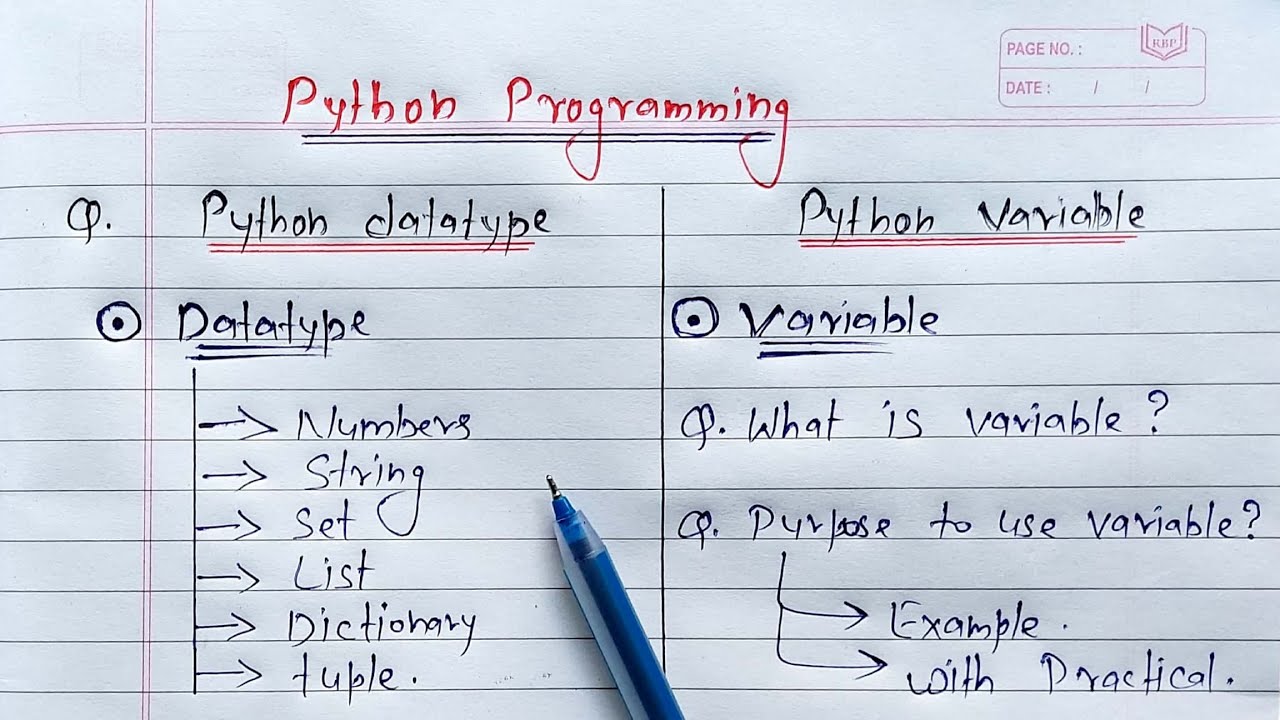 PAGE NO. :
RBP
DATE : / /
Python Programming
Q. Python datatype
Datatype
Numbers
String
Set
List
Dictionary
tuple.
Python Variable
Variable
Q. What is variable?
Q. Purpose to use variable?
Example.
with Practical.